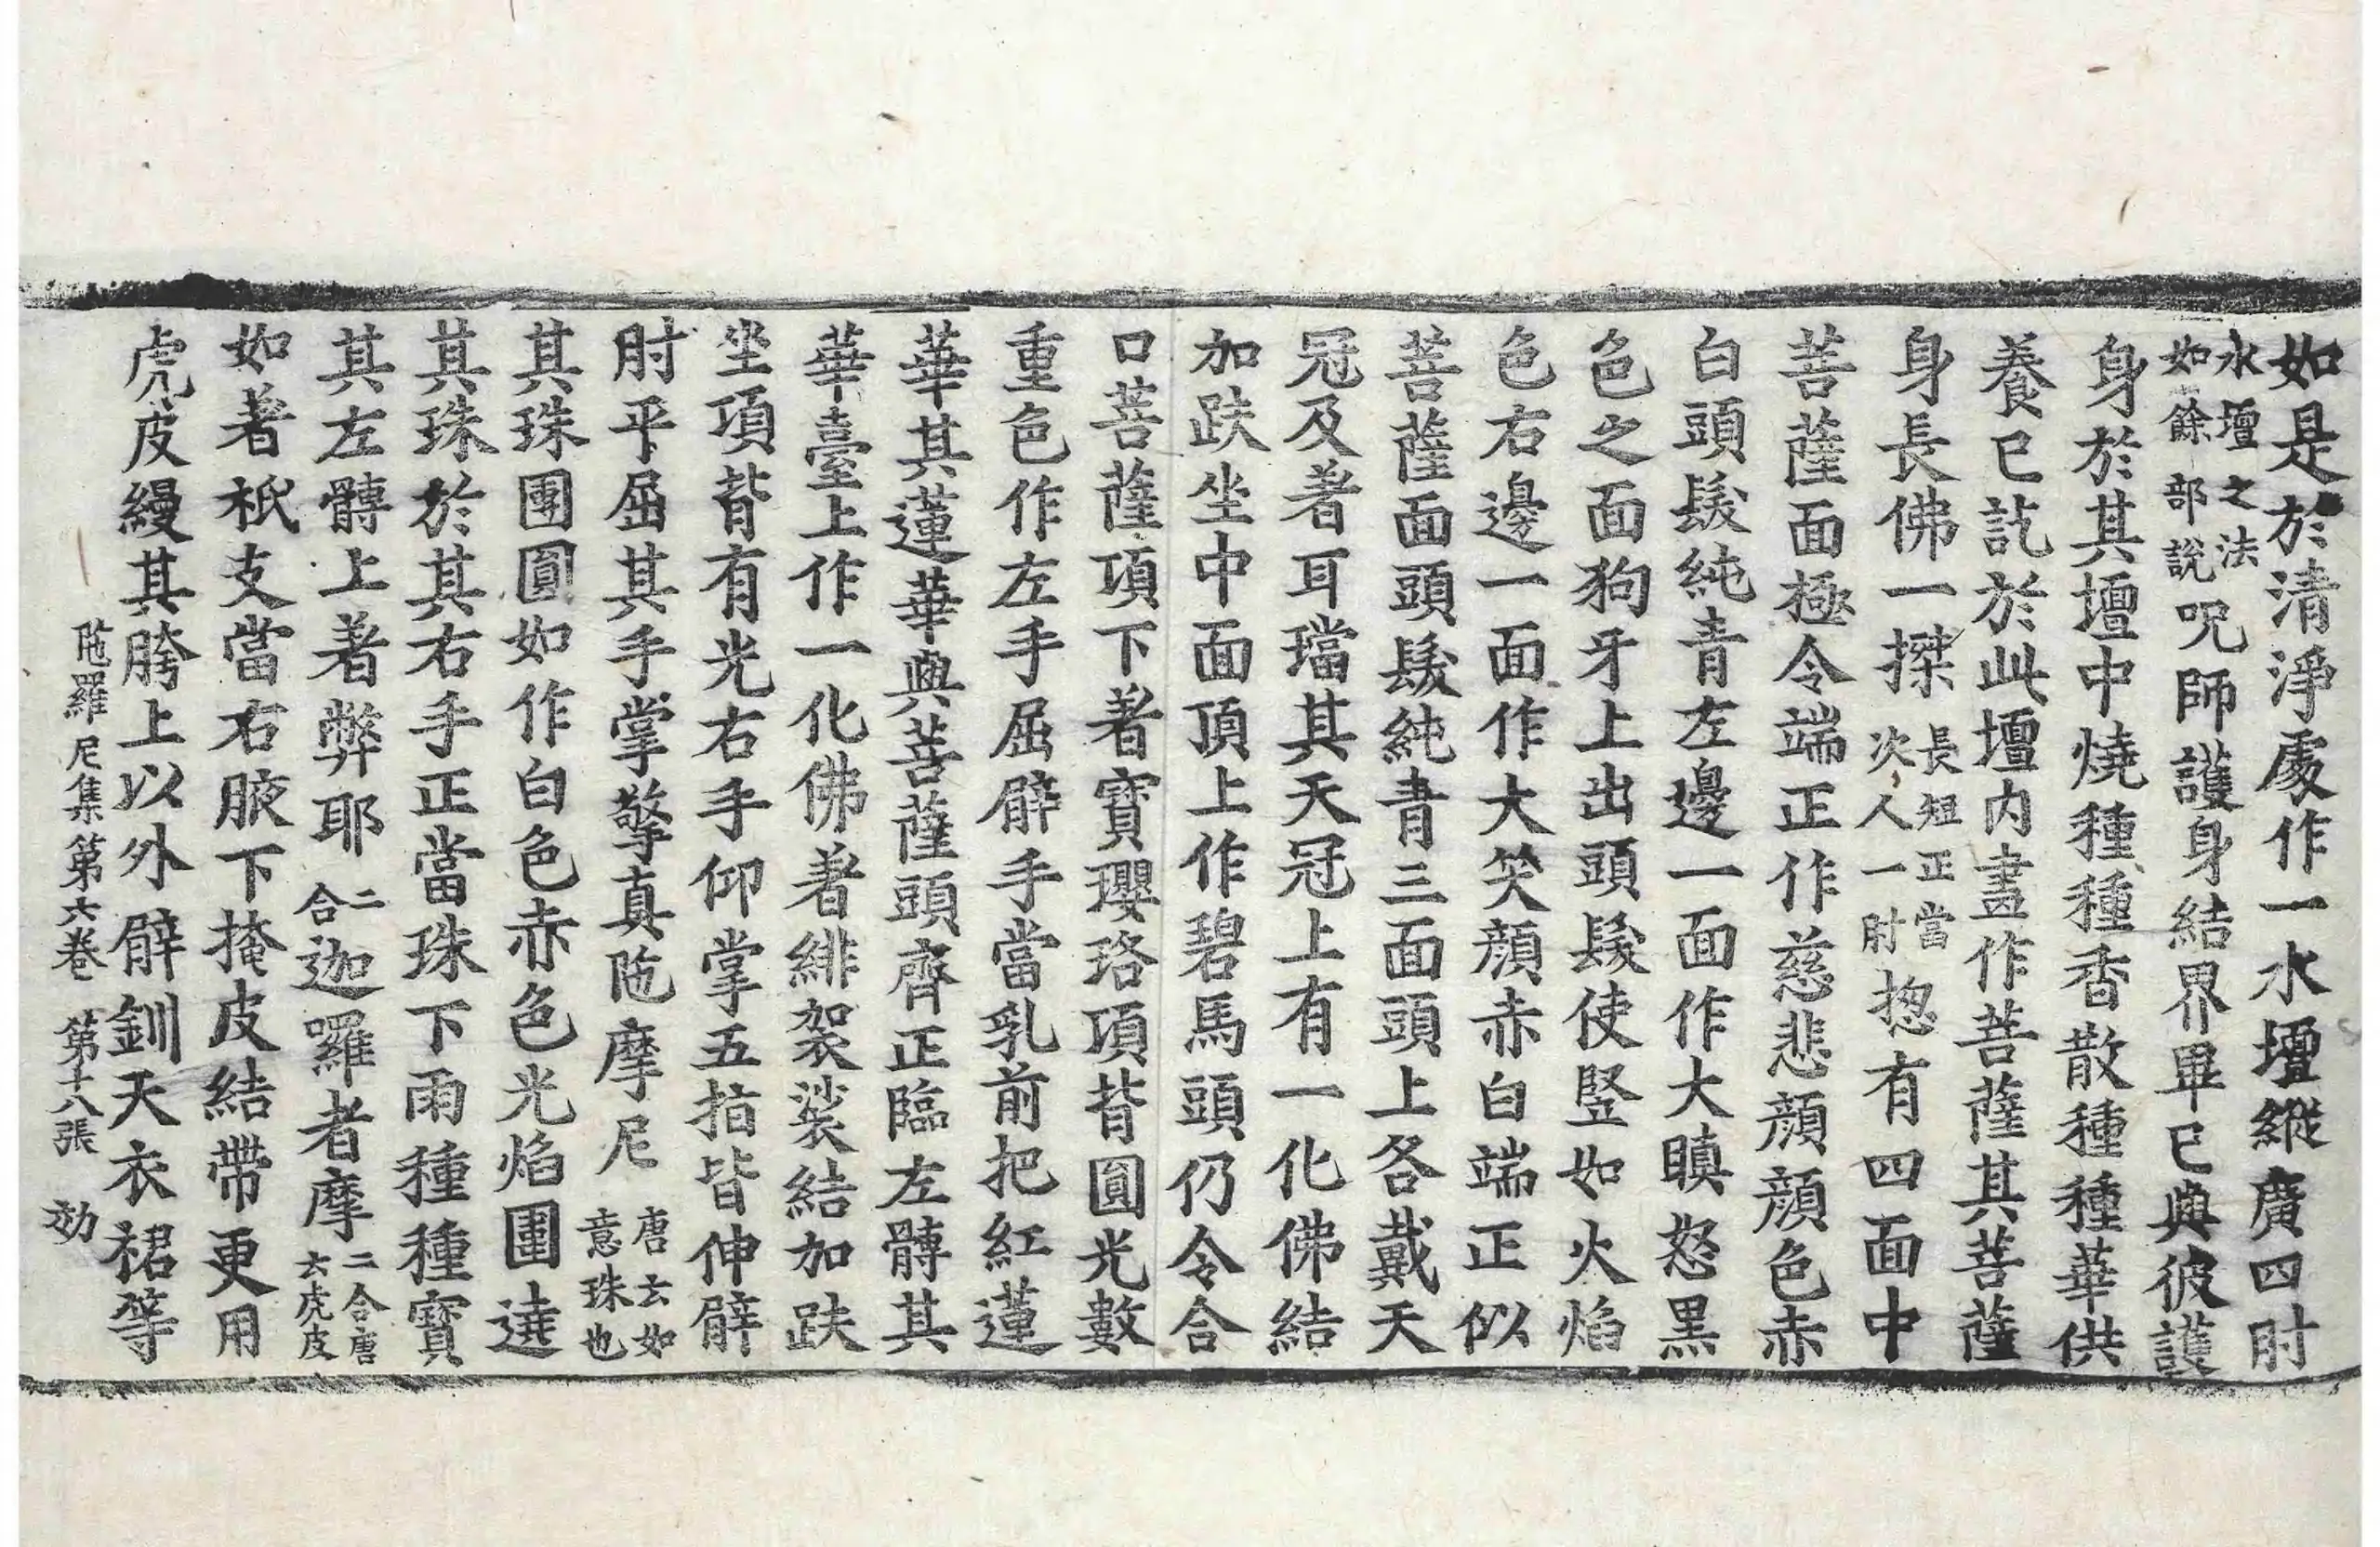 如是於清淨處作一水壇縱廣四肘
水壇之法如餘部說呪師護身結界畢已與彼護
身於其壇中燒種種香散種種華供
養已訖於此壇內盡作菩薩其菩薩
身長佛一搩長短正當次人一肘揔有四面中
菩薩面極令端正作慈悲顏顏色赤
白頭髮純青左邊一面作大瞋怒黑
色之面狗牙上出頭髮使竪如火焰
色右邊一面作大笑顏赤白端正似
菩薩面頭髮純青三面頭上各戴天
冠及著耳璫其天冠上有一化佛結
加趺坐中面頂上作碧馬頭仍令合
口菩薩項下著寶瓔珞項背圓光數
重色作左手屈臂手當乳前把紅蓮
華其蓮華與菩薩頭齊正臨左髆其
華臺上作一化佛著緋袈裟結加趺
坐項背有光右手仰掌五指皆伸臂
肘平屈其手掌擎真陁摩尼唐云如意珠也
其珠團圓如作白色赤色光焰圍遶
其珠於其右手正當珠下雨種種寶
其左髆上著弊耶二合迦囉者摩二合唐云虎皮
如著祇支當右腋下掩皮結帶更用
虎皮縵其胯上以外臂釧天衣裙等
陁羅尼集第六卷 第十八張 効